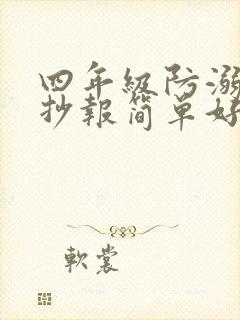 四年级防溺
抄报简单好
軟裳